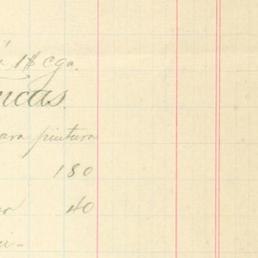 1$ cga.
ncas.
ara pintura
180
40